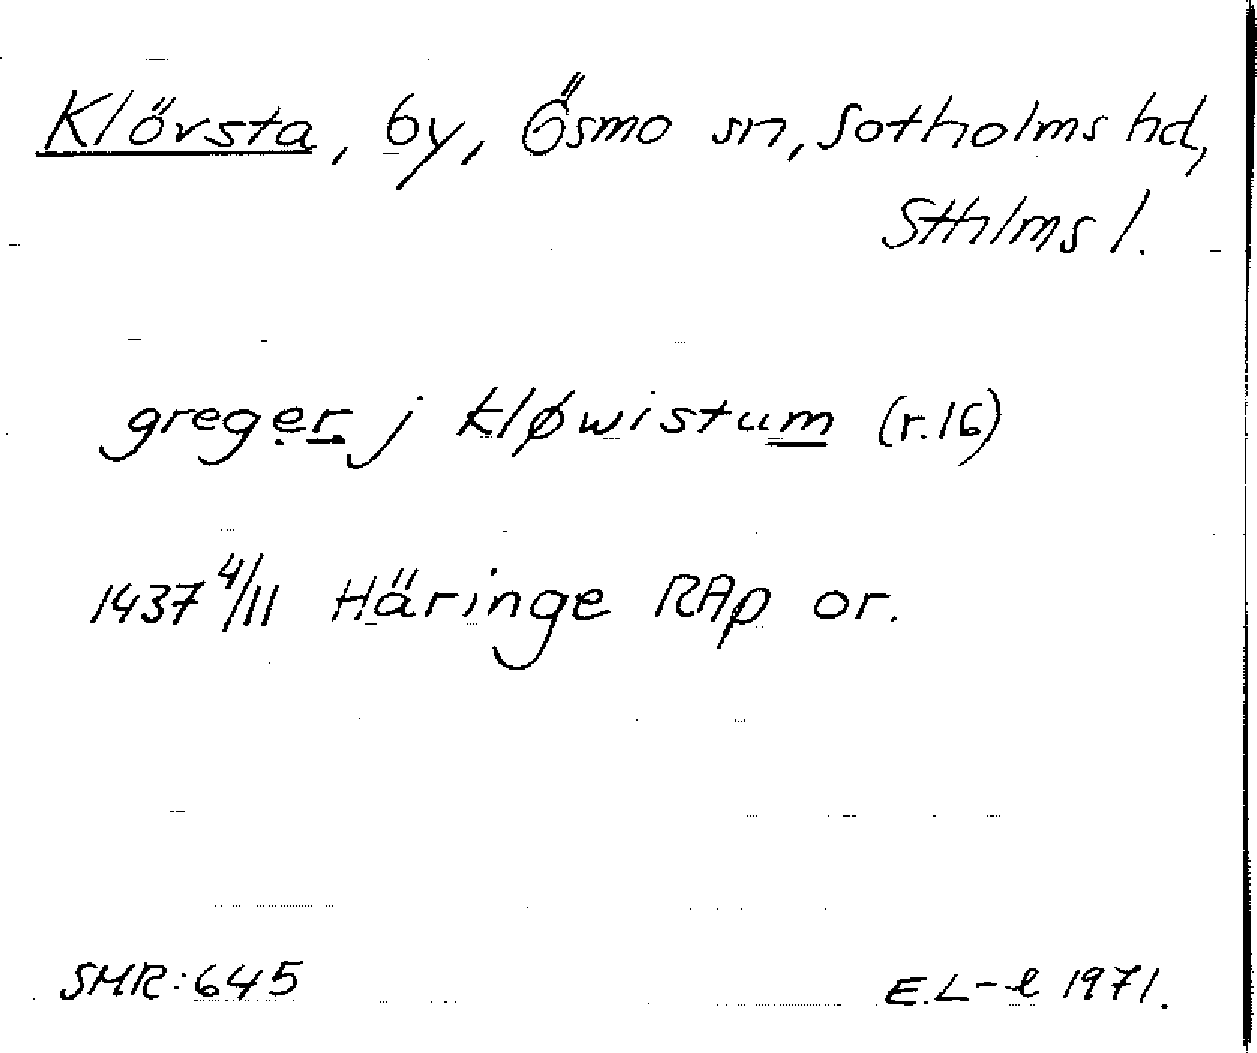 Klövsta, by, Ösmo sn, Sotholms hd,
Sthlms l.
greger j kløwistum (r.16)
1437 4/11 Häringe RAp or.
SMR:645
E.L-l 1971.